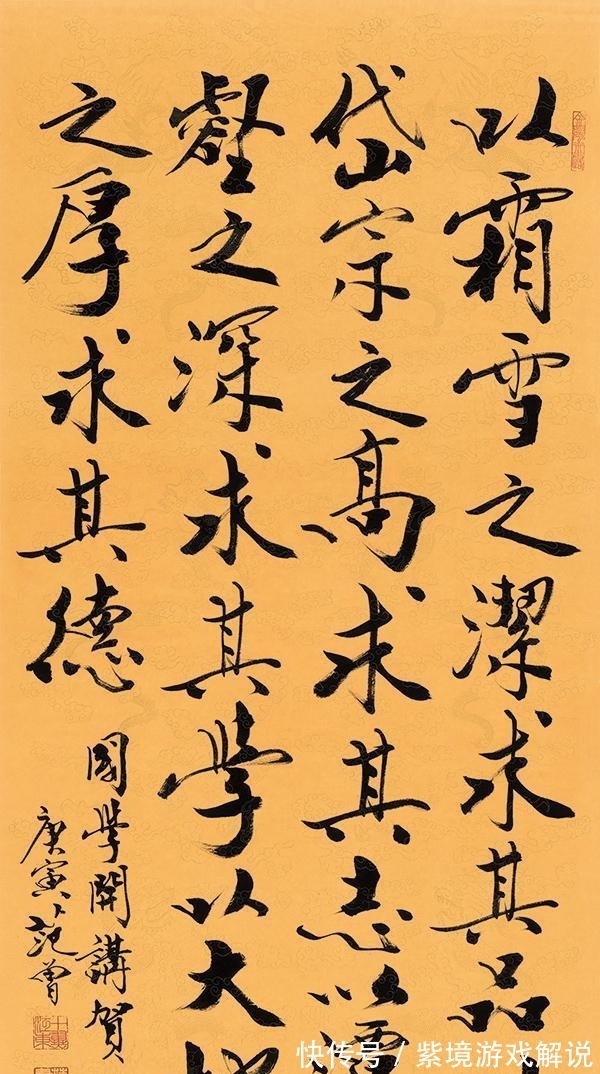 以霜雪之潔求其品
岱宗之高求其志以
壑之深求其學以大
之厚求其德
國學開講賀
庚寅范曾
快传号 / 紫境游戏解说